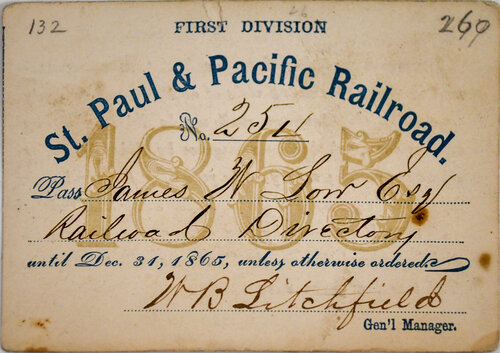 132
FIRST DIVISION
269
St. Paul & Pacific Railroad.
No. 251
1865
Pass James W Low Esq
Railroad Directory
until Dec. 31, 1865, unless otherwise ordered.
W B Litchfield
Gen'l Manager.